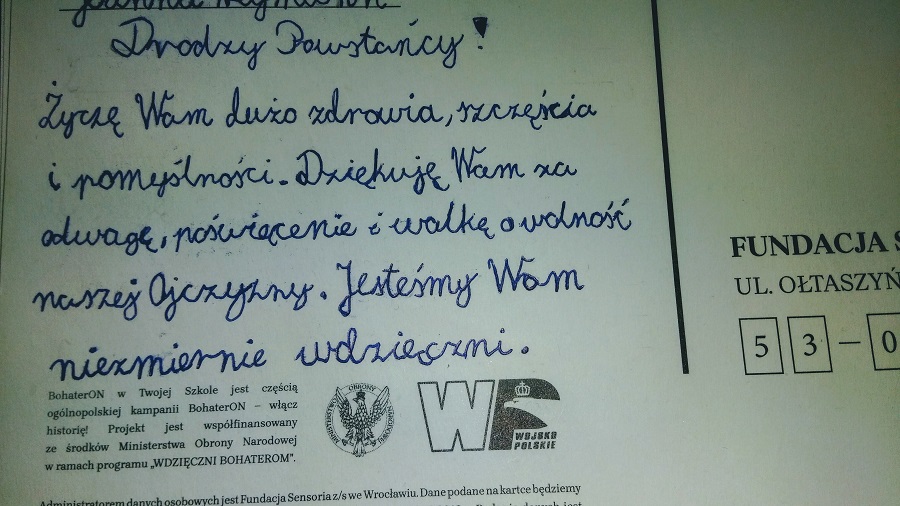 Drodzy Powstańcy!
Życzę Wam dużo zdrowia, szczęścia
i pomyślności. Dziękuję Wam za
odwagę, poświęcenie i walkę o wolność
naszej Ojczyzny. Jesteśmy Wam
niezmiernie wdzięczni.
BohaterON w Twojej Szkole jest częścią
ogólnopolskiej kampanii BohaterON – włącz
historię! Projekt jest współfinansowany
ze środków Ministerstwa Obrony Narodowej
w ramach programu „WDZIĘCZNI BOHATEROM".
MINISTERSTWO OBRONY NARODOWEJ
WP
WOJSKO
POLSKIE
Administratorem danych osobowych jest Fundacja Sensoria z/s we Wrocławiu. Dane podane na kartce będziemy
FUNDACJA S
UL. OŁTASZYŃ
53-0